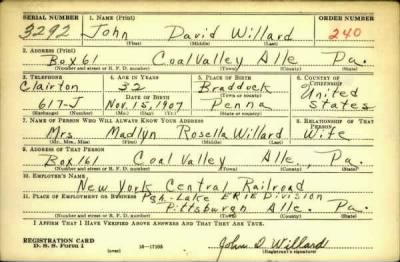 SERIAL NUMBER 1. NAME (Print) ORDER NUMBER
3292 John David Willard 240
(First) (Middle) (Last)
2. ADDRESS (Print)
Box 61 Coal Valley Alle. Pa.
(Number and street or R. F. D. number) (Town) (County) (State)
3. TELEPHONE 4. AGE IN YEARS 5. PLACE OF BIRTH 6. COUNTRY OF CITIZENSHIP
Clairton 32 Braddock United
DATE OF BIRTH (Town or county)
617-J Nov. 15, 1907 Penna States
(Exchange) (Number) (Mo.) (Day) (Yr.) (State or country)
7. NAME OF PERSON WHO WILL ALWAYS KNOW YOUR ADDRESS 8. RELATIONSHIP OF THAT PERSON
Mrs. Madlyn Rosella Willard Wife
(Mr., Mrs., Miss) (First) (Middle) (Last)
9. ADDRESS OF THAT PERSON
Box 161 Coal Valley Alle. Pa.
(Number and street or R. F. D. number) (Town) (County) (State)
10. EMPLOYER'S NAME
New York Central Railroad
11. PLACE OF EMPLOYMENT OR BUSINESS Pgh. Lake ERIE Division
Pittsburgh Alle. Pa.
(Number and street or R. F. D. number) (Town) (County) (State)
I AFFIRM THAT I HAVE VERIFIED ABOVE ANSWERS AND THAT THEY ARE TRUE.
REGISTRATION CARD
D. S. S. Form 1 (over) 16—17105 John D. Willard